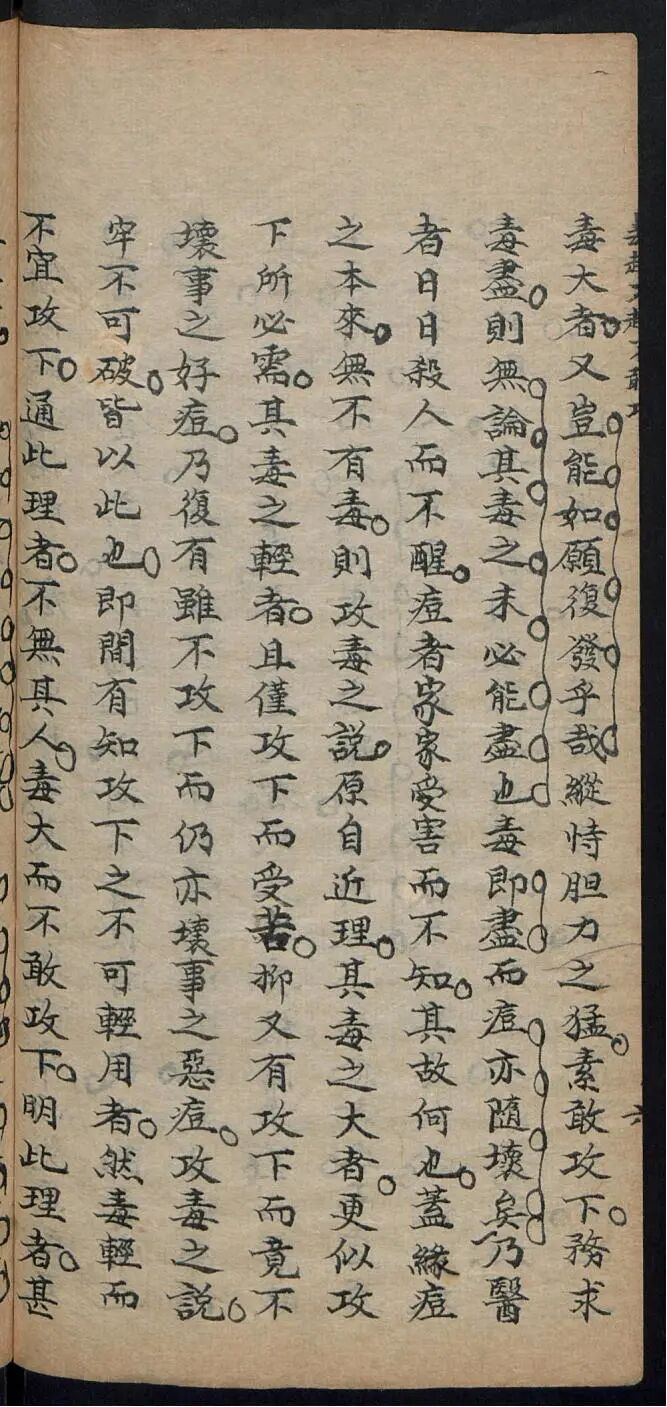 毒大者又豈能如願復發乎哉縱恃胆力之猛素敢攻下務求
毒盡則無論其毒之未必能盡也毒即盡而痘亦隨壞矣乃醫
者日日殺人而不醒痘者家家受害而不知其故何也蓋緣痘
之本來無不有毒則攻毒之說原自近理其毒之大者更似攻
下所必需其毒之輕者且僅攻下而受苦抑又有攻下而竟不
壞事之好痘乃復有雖不攻下而仍亦壞事之惡痘攻毒之說
牢不可破皆以此也即間有知攻下之不可輕用者然毒輕而
不宜攻下通此理者不無其人毒大而不敢攻下明此理者甚
六